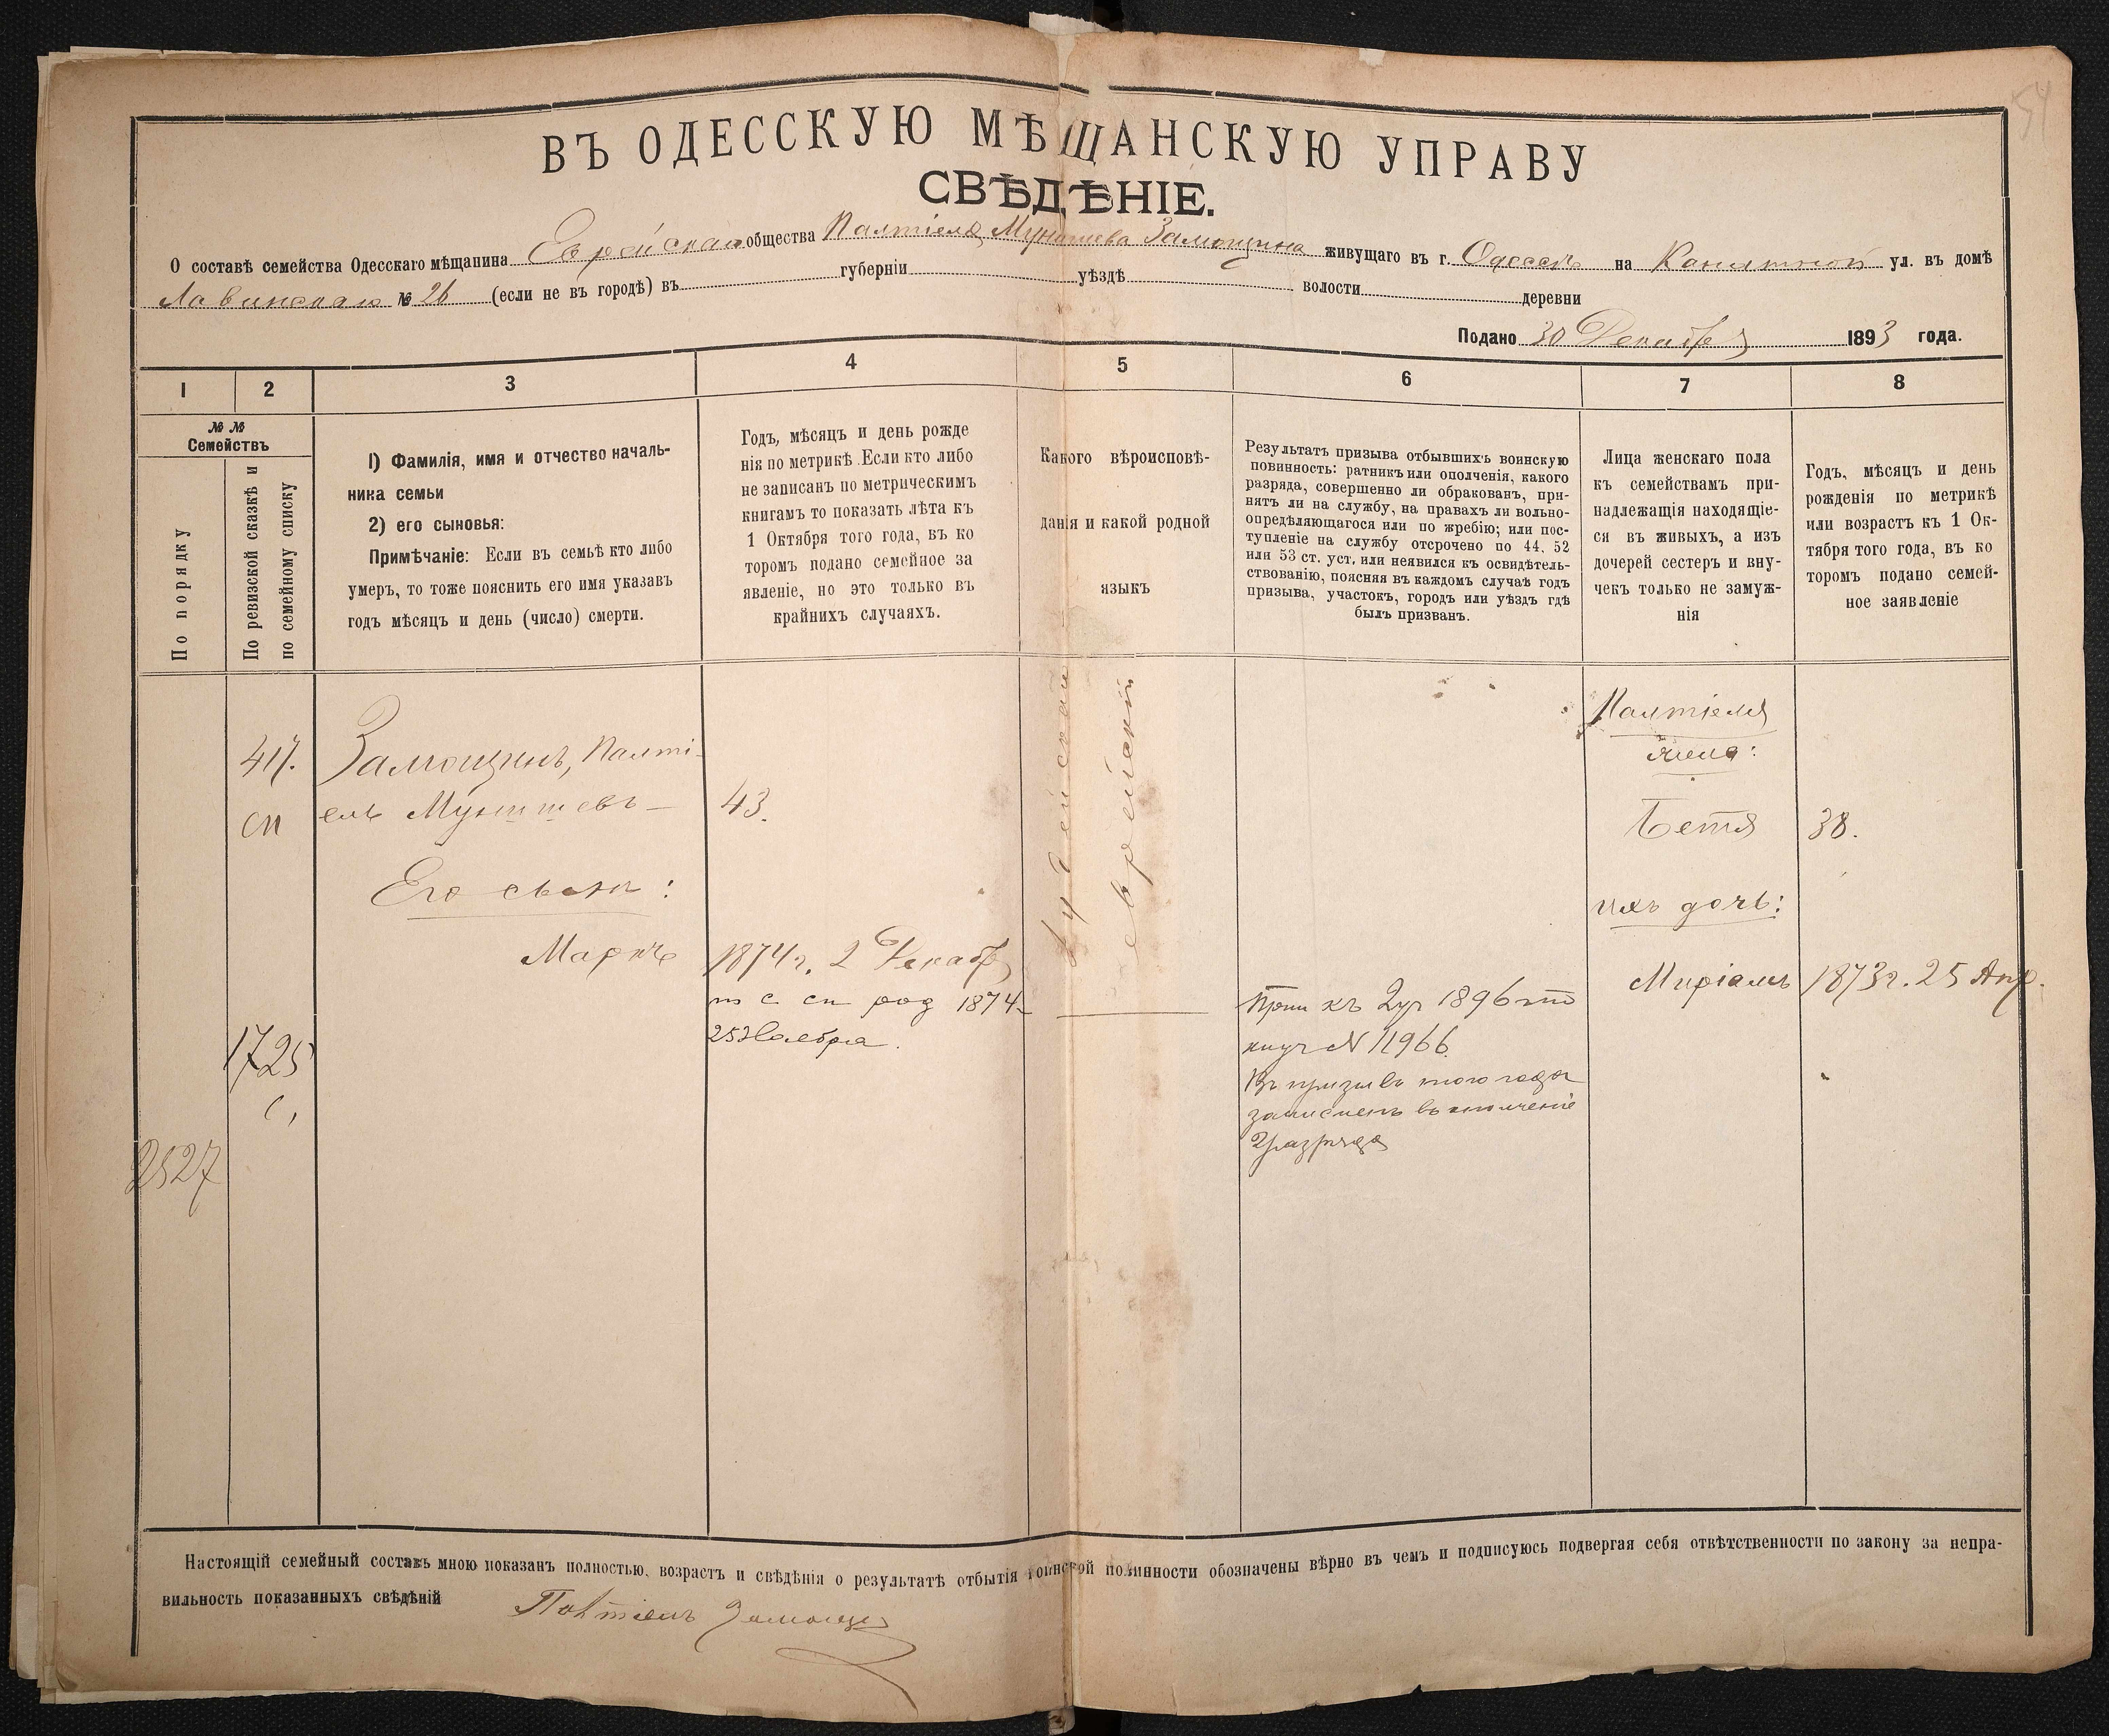 54
ВЪ ОДЕССКУЮ МѢЩАНСКУЮ УПРАВУ
СВѢДѢНІЕ.
О составѣ семейства Одесскаго мѣщанина Еврейскаго общества Палтіеля Замощина живущаго въ г. Одессѣ на Канатной ул. въ домѣ
Лавинскаго № 26 (если не въ городѣ) въ губерніи уѣздѣ волости деревни
Подано 30 Декабря 1893 года.
1 2 3 4 5 6 7 8
№ №
Семействъ
По порядку
По ревизской сказкѣ и
по семейному списку
1) Фамилія, имя и отчество началь-
ника семьи
2) его сыновья:
Примѣчаніе: Если въ семьѣ кто либо
умеръ, то тоже пояснить его имя указавъ
годъ мѣсяцъ и день (число) смерти.
Годъ, мѣсяцъ и день рожде
нія по метрикѣ. Если кто либо
не записанъ по метрическимъ
книгамъ то показать лѣта къ
1 Октября того года, въ ко
торомъ подано семейное за
явленіе, но это только въ
крайнихъ случаяхъ.
Какого вѣроисповѣ-
данія и какой родной
языкъ
Результатъ призыва отбывшихъ воинскую
повинность: ратникъ или ополченія, какого
разряда, совершенно ли обракованъ, при-
нятъ ли на службу, на правахъ ли вольно-
опредѣляющагося или по жребію; или пос-
тупленіе на службу отсрочено по 44, 52
или 53 ст. уст. или неявился къ освидѣтель-
ствованію, поясняя въ каждомъ случаѣ годъ
призыва, участокъ, городъ или уѣздъ гдѣ
былъ призванъ.
Лица женскаго пола
къ семействамъ при-
надлежащія находящіе-
ся въ живыхъ, а изъ
дочерей сестеръ и вну-
чекъ только не замуж-
нія
Годъ, мѣсяцъ и день
рожденія по метрикѣ
или возрастъ къ 1 Ок-
тября того года, въ ко
торомъ подано семей-
ное заявленіе
417.
сп
1725
с,
2527
Замощинъ, Палті-
ель
Его сынъ:
Маркъ
43.
1874 г. 2 Декабр
п с сп род 1874
25 Ноября.
Іудейскаго
еврейскій
Прип къ 2 уч 1896
N 11966.
Въ призывъ того года
зачисленъ въ ополченіе
2 разряда
Палтіеля
жена:
Бетя
ихъ дочь:
Миріамъ
38.
1873 г. 25 Апр.
Настоящій семейный составъ мною показанъ полностью, возрастъ и свѣдѣнія о результатѣ отбытія воинской повинности обозначены вѣрно въ чемъ и подписуюсь подвергая себя отвѣтственности по закону за непра-
вильность показанныхъ свѣдѣній
Палтіель Замощин